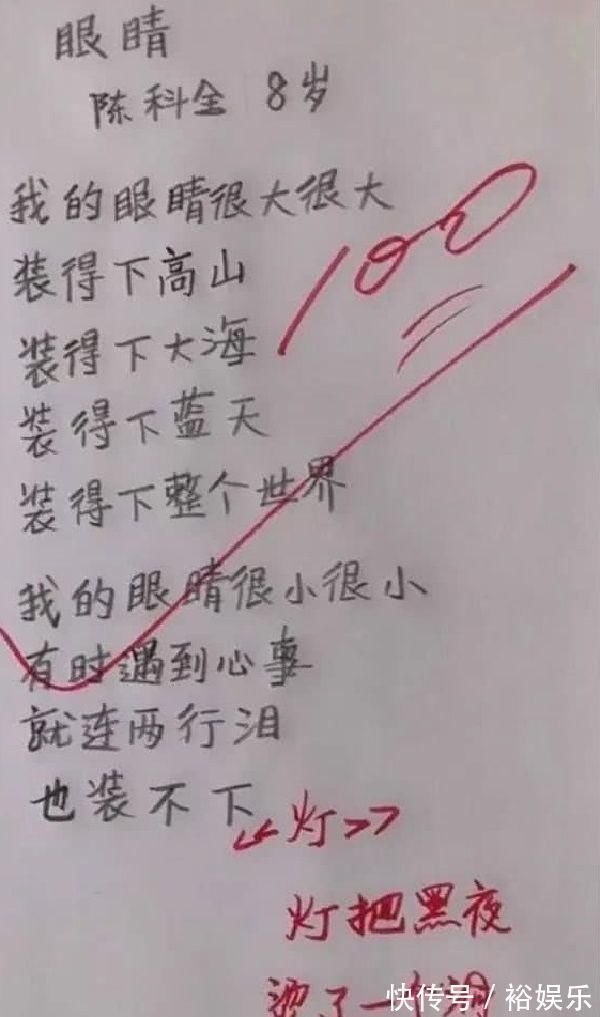 眼睛
陈科全 8岁
我的眼睛很大很大
装得下高山
装得下大海
装得下蓝天
装得下整个世界
我的眼睛很小很小
有时遇到心事
就连两行泪
也装不下
100
《灯>>
灯把黑夜
烫了一
快传号/裕娱乐